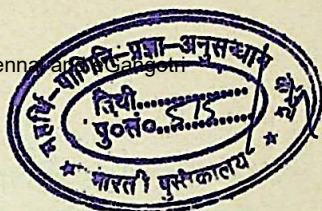 ennai and eGangotri
महर्षि-पाणिनि-प्रज्ञा-अनुसन्धान
तिथी..............
पु०सं०..............
★ भारती पुस्तकालय ★